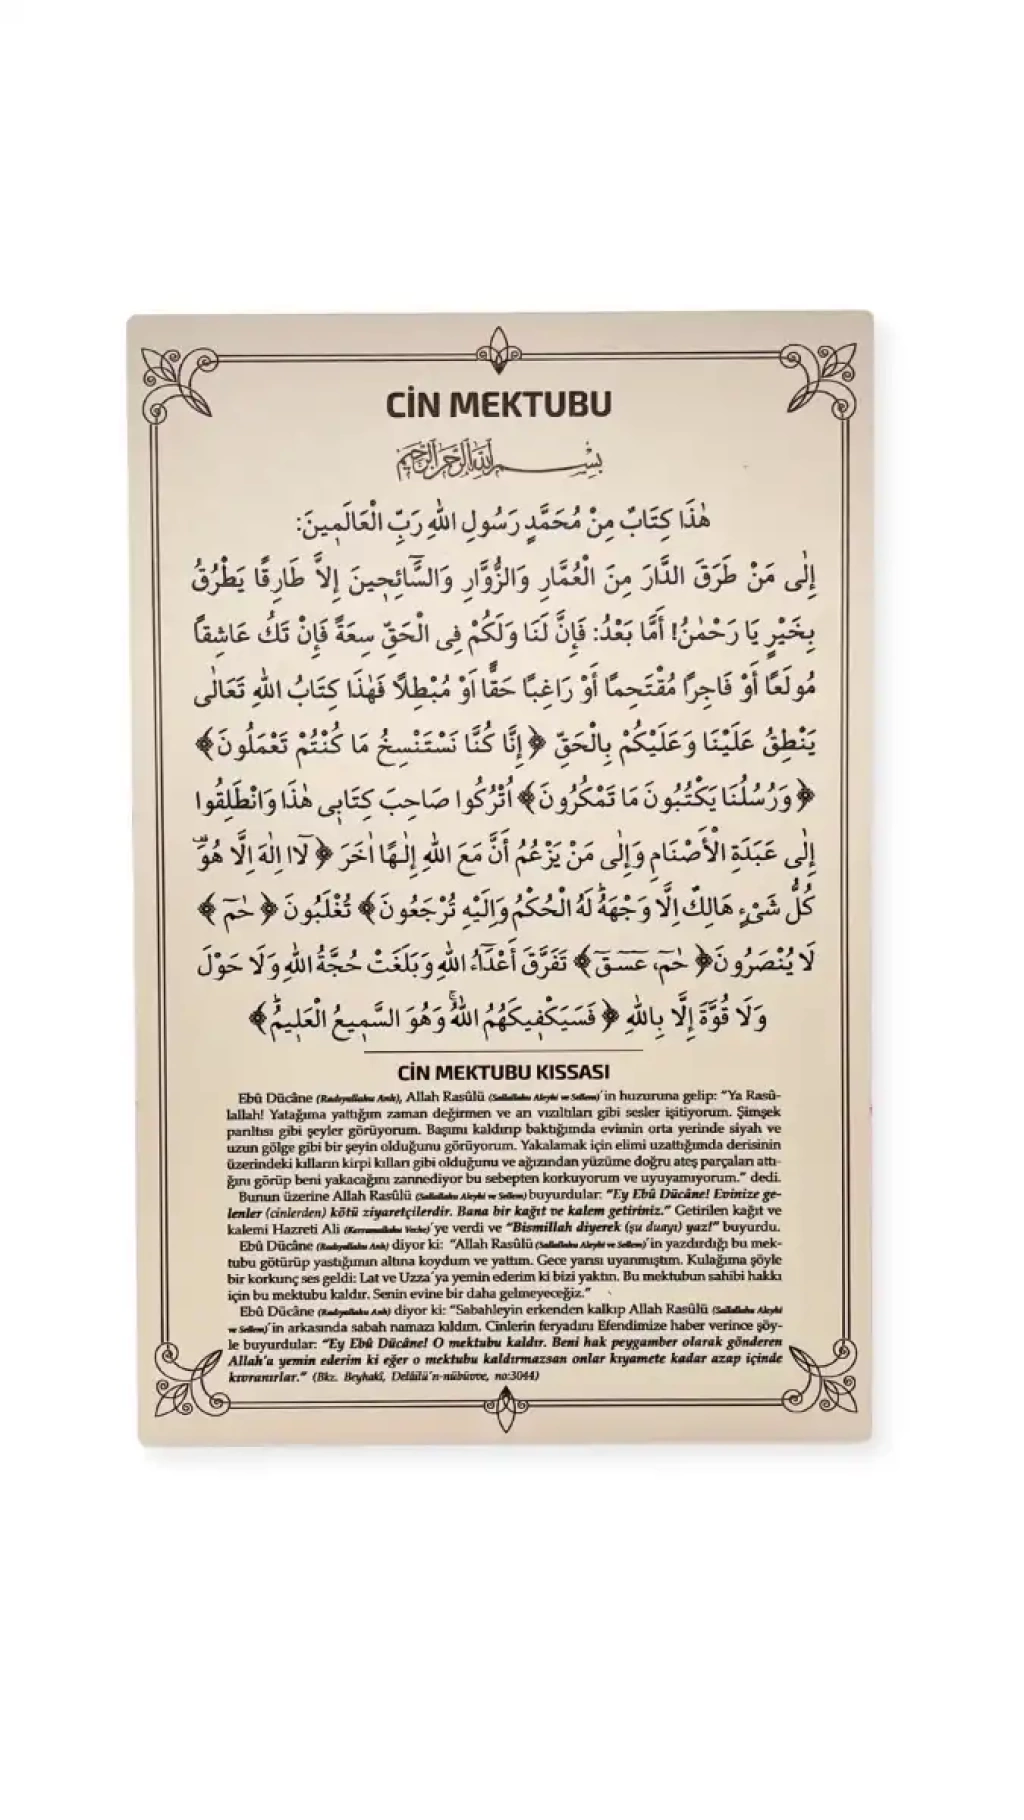 CİN MEKTUBU
بِسْمِ اللهِ الرَّحْمٰنِ الرَّحِيمِ
هٰذَا كِتَابٌ مِنْ مُحَمَّدٍ رَسُولِ اللهِ رَبِّ الْعَالَمِينَ:
إِلٰى مَنْ طَرَقَ الدَّارَ مِنَ الْعُمَّارِ وَالزُّوَّارِ وَالسَّٓائِحِينَ إِلاَّ طَارِقًا يَطْرُقُ
بِخَيْرٍ يَا رَحْمٰنُ! أَمَّا بَعْدُ: فَإِنَّ لَنَا وَلَكُمْ فِى الْحَقِّ سِعَةً فَإِنْ تَكُ عَاشِقاً
مُولَعًا أَوْ فَاجِرًا مُقْتَحِمًا أَوْ رَاغِبًا حَقًّا اَوْ مُبْطِلًا فَهٰذَا كِتَابُ اللهِ تَعَالٰى
يَنْطِقُ عَلَيْنَا وَعَلَيْكُمْ بِالْحَقِّ ﴿ إِنَّا كُنَّا نَسْتَنْسِخُ مَا كُنْتُمْ تَعْمَلُونَ﴾
﴿ وَرُسُلُنَا يَكْتُبُونَ مَا تَمْكُرُونَ﴾ اُتْرُكُوا صَاحِبَ كِتَابِى هٰذَا وَانْطَلِقُوا
إِلٰى عَبَدَةِ الْأَصْنَامِ وَإِلٰى مَنْ يَزْعُمُ أَنَّ مَعَ اللهِ إِلٰهًا اٰخَرَ ﴿ لَٓا اِلٰهَ اِلَّا هُوَۜ
كُلُّ شَىْءٍ هَالِكٌ اِلَّا وَجْهَهُۜ لَهُ الْحُكْمُ وَاِلَيْهِ تُرْجَعُونَ﴾ تُغْلَبُونَ ﴿ حٰمٓ ﴾
لَا يُنْصَرُونَ ﴿ حٰمٓ، عٓسٓقٓ ﴾ تَفَرَّقَ أَعْدَٓاءُ اللهِ وَبَلَغَتْ حُجَّةُ اللهِ وَلَا حَوْلَ
وَلَا قُوَّةَ إِلَّا بِاللهِ ﴿ فَسَيَكْفِيكَهُمُ اللهُۚ وَهُوَ السَّمِيعُ الْعَلِيمُۜ ﴾
CİN MEKTUBU KISSASI
Ebû Dücâne (Radıyallahu Anh), Allah Rasûlü (Sallallahu Aleyhi ve Sellem)'in huzuruna gelip: "Ya Rasû-
lallah! Yatağıma yattığım zaman değirmen ve arı vızıltıları gibi sesler işitiyorum. Şimşek
parıltısı gibi şeyler görüyorum. Başımı kaldırıp baktığımda evimin orta yerinde siyah ve
uzun gölge gibi bir şeyin olduğunu görüyorum. Yakalamak için elimi uzattığımda derisinin
üzerindeki kılların kirpi kılları gibi olduğunu ve ağızından yüzüme doğru ateş parçaları attı-
ğını görüp beni yakacağını zannediyor bu sebepten korkuyorum ve uyuyamıyorum." dedi.
Bunun üzerine Allah Rasûlü (Sallallahu Aleyhi ve Sellem) buyurdular: "Ey Ebû Dücâne! Evinize ge-
lenler (cinlerden) kötü ziyaretçilerdir. Bana bir kağıt ve kalem getiriniz." Getirilen kağıt ve
kalemi Hazreti Ali (Kerramallahu Veche)'ye verdi ve "Bismillah diyerek (şu duayı) yaz!" buyurdu.
Ebû Dücâne (Radıyallahu Anh) diyor ki: "Allah Rasûlü (Sallallahu Aleyhi ve Sellem)'in yazdırdığı bu mek-
tubu götürüp yastığımın altına koydum ve yattım. Gece yarısı uyanmıştım. Kulağıma şöyle
bir korkunç ses geldi: Lat ve Uzza'ya yemin ederim ki bizi yaktın. Bu mektubun sahibi hakkı
için bu mektubu kaldır. Senin evine bir daha gelmeyeceğiz."
Ebû Dücâne (Radıyallahu Anh) diyor ki: "Sabahleyin erkenden kalkıp Allah Rasûlü (Sallallahu Aleyhi
ve Sellem)'in arkasında sabah namazı kıldım. Cinlerin feryadını Efendimize haber verince şöy-
le buyurdular: "Ey Ebû Dücâne! O mektubu kaldır. Beni hak peygamber olarak gönderen
Allah'a yemin ederim ki eğer o mektubu kaldırmazsan onlar kıyamete kadar azap içinde
kıvranırlar." (Bkz. Beyhakî, Delâilü'n-nübüvve, no:3044)